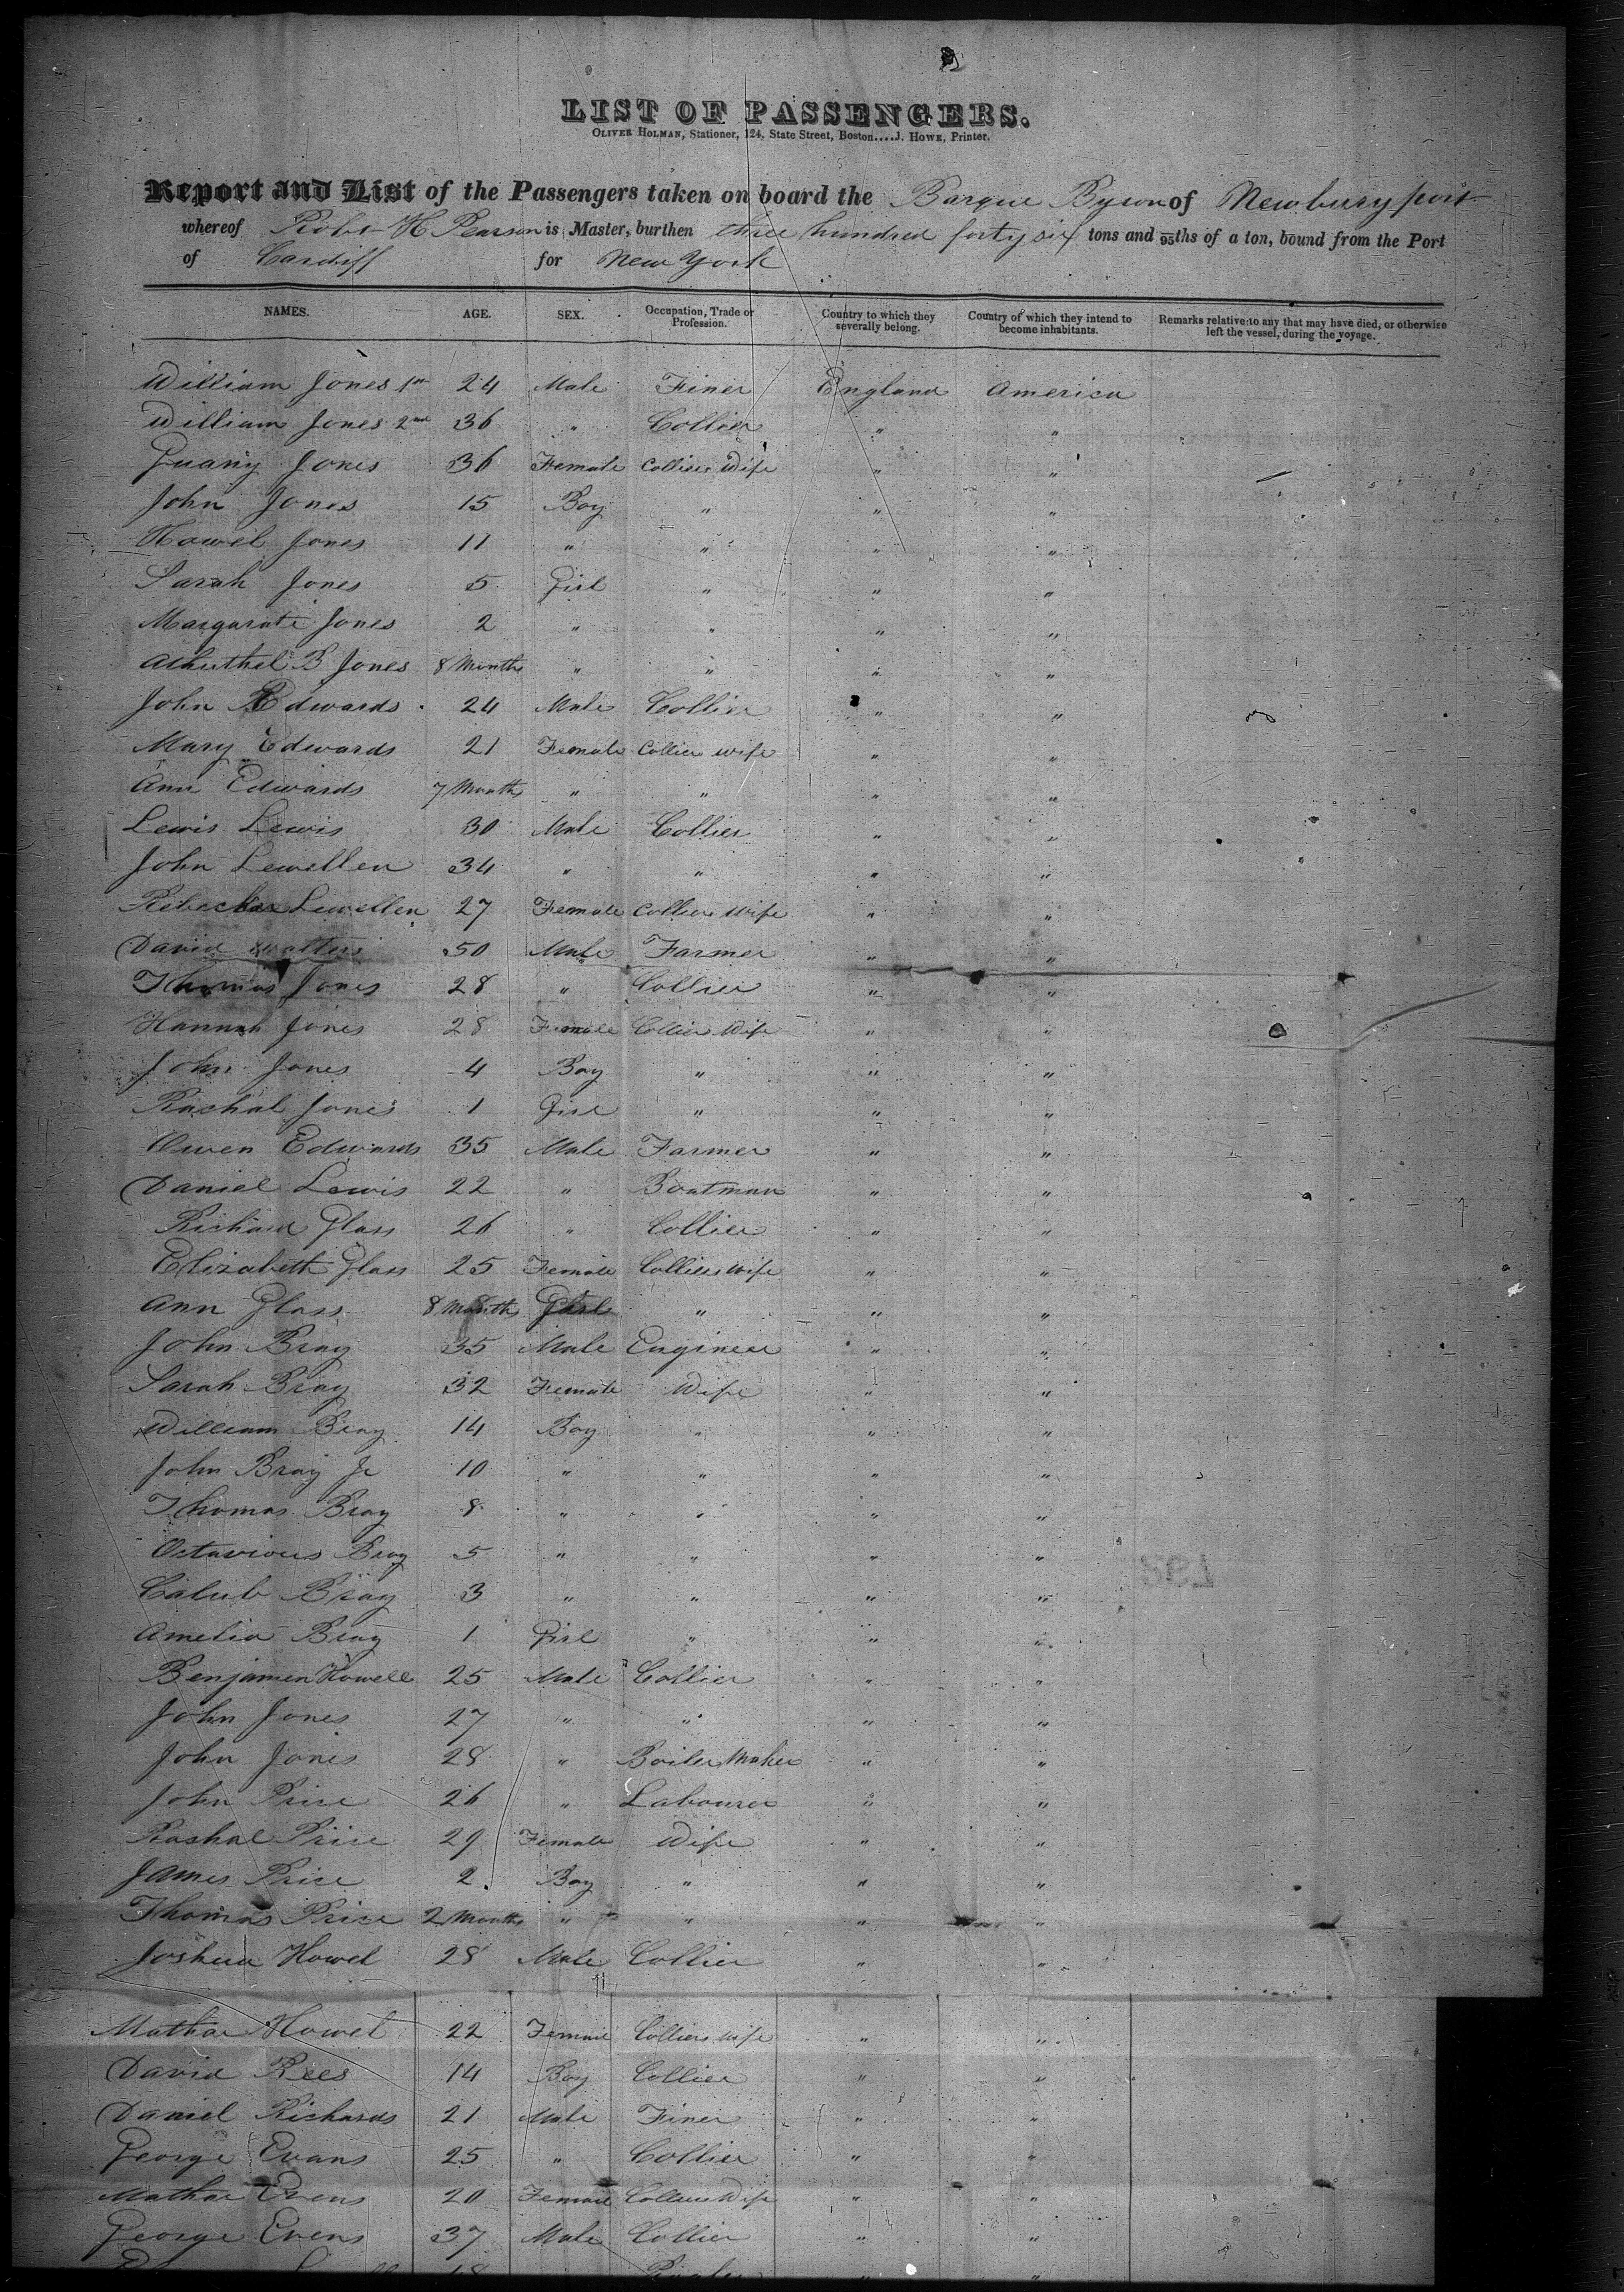 LIST OF PASSENGERS.
OLIVER HOLMAN, Stationer, 124, State Street, Boston....J. HOWE, Printer.
Report and List of the Passengers taken on board the Barque Byron of Newburyport
whereof Robt H Pearson is Master, burthen three hundred forty six tons and 95ths of a ton, bound from the Port
of Cardiff for New York
NAMES. AGE. SEX. Occupation, Trade or Profession. Country to which they severally belong. Country of which they intend to become inhabitants. Remarks relative to any that may have died, or otherwise left the vessel, during the voyage.
William Jones 1st 24 Male Finer England America
William Jones 2nd 36 " Collier " "
Jones 36 Female Colliers Wife " "
John Jones 15 Boy " " "
Howel Jones 11 " " " "
Sarah Jones 5 Girl " " "
Margarate Jones 2 " " " "
B Jones 8 Months " " " "
John Edwards 24 Male Collier " "
Mary Edwards 21 Female Collier wife " "
Ann Edwards 7 Months " " " "
Lewis Lewis 30 Male Collier " "
John Lewellen 34 " " " "
Lewellen 27 Female Colliers Wife " "
David Walters 50 Male Farmer " "
Thomas Jones 28 " Collier " "
Hannah Jones 28 Female Colliers Wife " "
John Jones 4 Boy " " "
Rashal Jones 1 Girl " " "
Owen Edwards 35 Male Farmer " "
Daniel Lewis 22 " Boatman " "
Richard Glass 26 " Collier " "
Elizabeth Glass 25 Female Colliers Wife " "
Ann Glass 8 Months Girl " " "
John Bray 35 Male Engineer " "
Sarah Bray 32 Female Wife " "
William Bray 14 Boy " " "
John Bray Jr 10 " " " "
Thomas Bray 8 " " " "
Octavious Bray 5 " " " "
Calub Bray 3 " " " "
Amelia Bray 1 Girl " " "
Benjamen Howell 25 Male Collier " "
John Jones 27 " " " "
John Jones 28 " Boiler Maker " "
John Price 26 " Labourer " "
Rashal Price 29 Female Wife " "
James Price 2 Boy " " "
Thomas Price 2 Months " " " "
Joshua Howel 28 Male Collier " "
Mathar Howel 22 Female Colliers Wife " "
David Rees 14 Boy Collier " "
Daniel Richards 21 Male Finer " "
George Evans 25 " Collier " "
Mathar Evens 20 Female Colliers Wife " "
George Evens 37 Male Collier " "
18